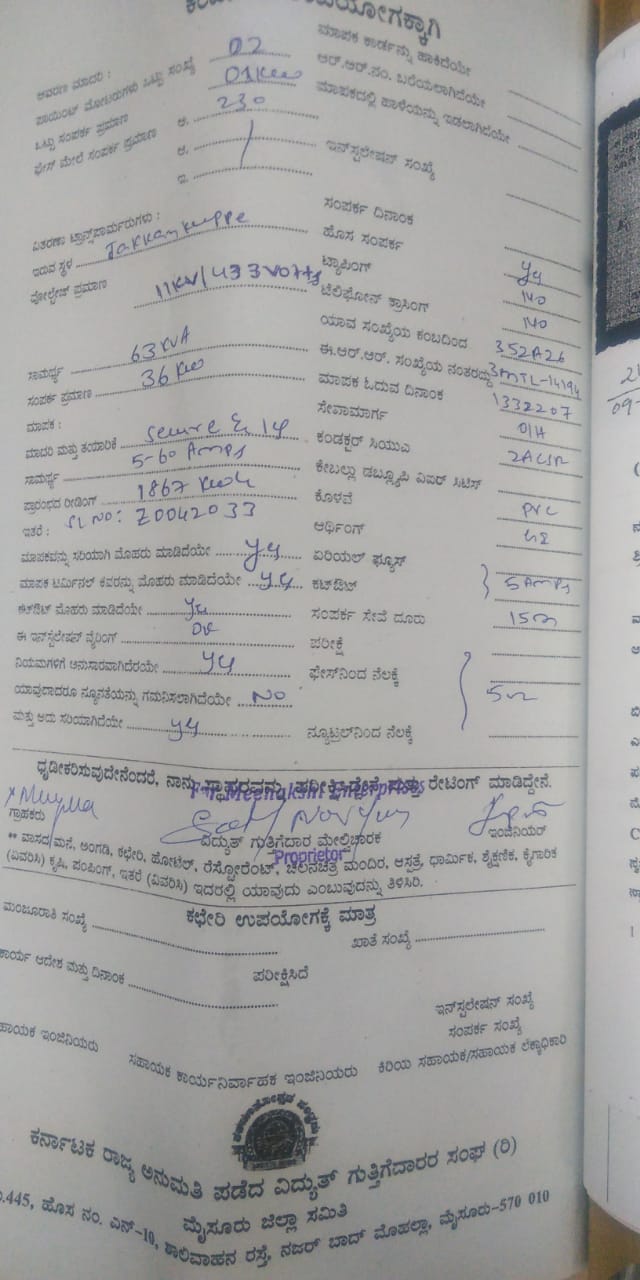 ಉಪಯೋಗಕ್ಕಾಗಿ
ಆವರಣ ಮಾದರಿ :
ಪಾಯಿಂಟ್ ಮೋಟರುಗಳು ಒಟ್ಟು ಸಂಖ್ಯೆ 02
ಒಟ್ಟು ಸಂಪರ್ಕ ಪ್ರಮಾಣ 01 Kw
ಫೇಸ್ ಮೇಲೆ ಸಂಪರ್ಕ ಪ್ರಮಾಣ 230
ವಿತರಣಾ ಟ್ರಾನ್ಸ್‌ಪಾರ್ಮರುಗಳು :
ಇರುವ ಸ್ಥಳ
ವೋಲ್ಟೇಜ್ ಪ್ರಮಾಣ 11KV/433 Volts
ಸಾಮರ್ಥ್ಯ 63 KVA
ಸಂಪರ್ಕ ಪ್ರಮಾಣ 36 Kw
ಮಾಪಕ :
ಮಾದರಿ ಮತ್ತು ತಯಾರಿಕೆ Secure
ಸಾಮರ್ಥ್ಯ 5-60 Amps
ಪ್ರಾರಂಭದ ರೀಡಿಂಗ್ 1867 Kwh
ಇತರೆ : SL NO: Z0042033
ಮಾಪಕವನ್ನು ಸರಿಯಾಗಿ ಮೊಹರು ಮಾಡಿದೆಯೇ
ಮಾಪಕ ಟರ್ಮಿನಲ್ ಕವರನ್ನು ಮೊಹರು ಮಾಡಿದೆಯೇ
ಕಟ್ಔಟ್ ಮೊಹರು ಮಾಡಿದೆಯೇ
ಈ ಇನ್‌ಸ್ಟಲೇಷನ್ ವೈರಿಂಗ್
ನಿಯಮಗಳಿಗೆ ಅನುಸಾರವಾಗಿದೆಯೇ
ಯಾವುದಾದರೂ ನ್ಯೂನತೆಯನ್ನು ಗಮನಿಸಲಾಗಿದೆಯೇ NO
ಮತ್ತು ಅದು ಸರಿಯಾಗಿದೆಯೇ
ಮಾಪಕ ಕಾರ್ಡನ್ನು ಹಾಕಿದೆಯೇ
ಆರ್.ಆರ್.ನಂ. ಬರೆಯಲಾಗಿದೆಯೇ
ಮಾಪಕದಲ್ಲಿ ಹಾಳೆಯನ್ನು ಇಡಲಾಗಿದೆಯೇ
ಇನ್‌ಸ್ಟಲೇಷನ್ ಸಂಖ್ಯೆ
ಸಂಪರ್ಕ ದಿನಾಂಕ
ಹೊಸ ಸಂಪರ್ಕ
ಟ್ಯಾಪಿಂಗ್ NO
ಟೆಲಿಫೋನ್ ಕ್ರಾಸಿಂಗ್ NO
ಯಾವ ಸಂಖ್ಯೆಯ ಕಂಬದಿಂದ 352A26
ಈ.ಆರ್.ಆರ್. ಸಂಖ್ಯೆಯ ನಂತರದ್ದು 3MTL-14194
ಮಾಪಕ ಓದುವ ದಿನಾಂಕ 1332207
ಸೇವಾಮಾರ್ಗ O/H
ಕಂಡಕ್ಟರ್ ಸಿಯುಎ 2ACSR
ಕೇಬಲ್ಲು ಡಬ್ಲ್ಯೂಪಿ ವಿಐಆರ್ ಸಿಟಿಸ್
ಕೊಳವೆ PVC
ಆರ್ಥಿಂಗ್
ಏರಿಯಲ್ ಫ್ಯೂಸ್
ಕಟ್ಔಟ್ 5 Amps
ಸಂಪರ್ಕ ಸೇವೆ ದೂರು 15m
ಪರೀಕ್ಷೆ
ಫೇಸ್‌ನಿಂದ ನೆಲಕ್ಕೆ
ನ್ಯೂಟ್ರಲ್‌ನಿಂದ ನೆಲಕ್ಕೆ
ಧೃಡೀಕರಿಸುವುದೇನೆಂದರೆ, ನಾನು ಸ್ಥಾವರವನ್ನು ಪರೀಕ್ಷಿಸಿದ್ದೇನೆ ಮತ್ತು ರೇಟಿಂಗ್ ಮಾಡಿದ್ದೇನೆ.
For Meenakshi Enterprises
ಗ್ರಾಹಕರು ವಿದ್ಯುತ್ ಗುತ್ತಿಗೆದಾರ ಮೇಲ್ವಿಚಾರಕ ಇಂಜಿನಿಯರ್
Proprietor
** ವಾಸದ ಮನೆ, ಅಂಗಡಿ, ಕಛೇರಿ, ಹೋಟೆಲ್, ರೆಸ್ಟೋರೆಂಟ್, ಚಲನಚಿತ್ರ ಮಂದಿರ, ಆಸ್ಪತ್ರೆ, ಧಾರ್ಮಿಕ, ಶೈಕ್ಷಣಿಕ, ಕೈಗಾರಿಕೆ
(ವಿವರಿಸಿ) ಕೃಷಿ, ಪಂಪಿಂಗ್, ಇತರೆ (ವಿವರಿಸಿ) ಇದರಲ್ಲಿ ಯಾವುದು ಎಂಬುವುದನ್ನು ತಿಳಿಸಿರಿ.
ಕಛೇರಿ ಉಪಯೋಗಕ್ಕೆ ಮಾತ್ರ
ಮಂಜೂರಾತಿ ಸಂಖ್ಯೆ ಖಾತೆ ಸಂಖ್ಯೆ
ಕಾರ್ಯ ಆದೇಶ ಮತ್ತು ದಿನಾಂಕ ಪರೀಕ್ಷಿಸಿದೆ
ಇನ್‌ಸ್ಟಲೇಷನ್ ಸಂಖ್ಯೆ
ಸಂಪರ್ಕ ಸಂಖ್ಯೆ
ಇಂಜಿನಿಯರು ಸಹಾಯಕ ಕಾರ್ಯನಿರ್ವಾಹಕ ಇಂಜಿನಿಯರು ಕಿರಿಯ ಸಹಾಯಕ/ಸಹಾಯಕ ಲೆಕ್ಕಾಧಿಕಾರಿ
ಕರ್ನಾಟಕ ರಾಜ್ಯ ಅನುಮತಿ ಪಡೆದ ವಿದ್ಯುತ್ ಗುತ್ತಿಗೆದಾರರ ಸಂಘ (ರಿ)
ಮೈಸೂರು ಜಿಲ್ಲಾ ಸಮಿತಿ
445, ಹೊಸ ನಂ. ಎನ್-10, ಶಾಲಿವಾಹನ ರಸ್ತೆ, ನಜರ್ ಬಾದ್ ಮೊಹಲ್ಲಾ, ಮೈಸೂರು-570 010